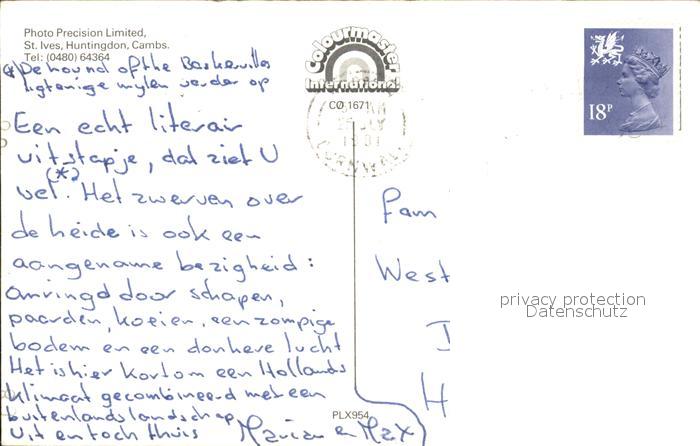 Photo Precision Limited,
St. Ives, Huntingdon, Cambs.
Tel: (0480) 64364
De hound of the Baskervilles
ligt enige mylen verder op
Een echt literair
uitstapje, dat ziet U
(*)
wel. Het zwerven over
de heide is ook een
aangename bezigheid:
omringd door schapen,
paarden, koeien, een zompige
bodem en een donkere lucht
Het is hier kortom een Hollands
klimaat gecombineerd met een
buitenlands landschap
Uit en toch thuis
Marian en Max
Colourmaster
International
CO 1671
CORNWALL
PLX954
18P
Fam
West
H
privacy protection
Datenschutz